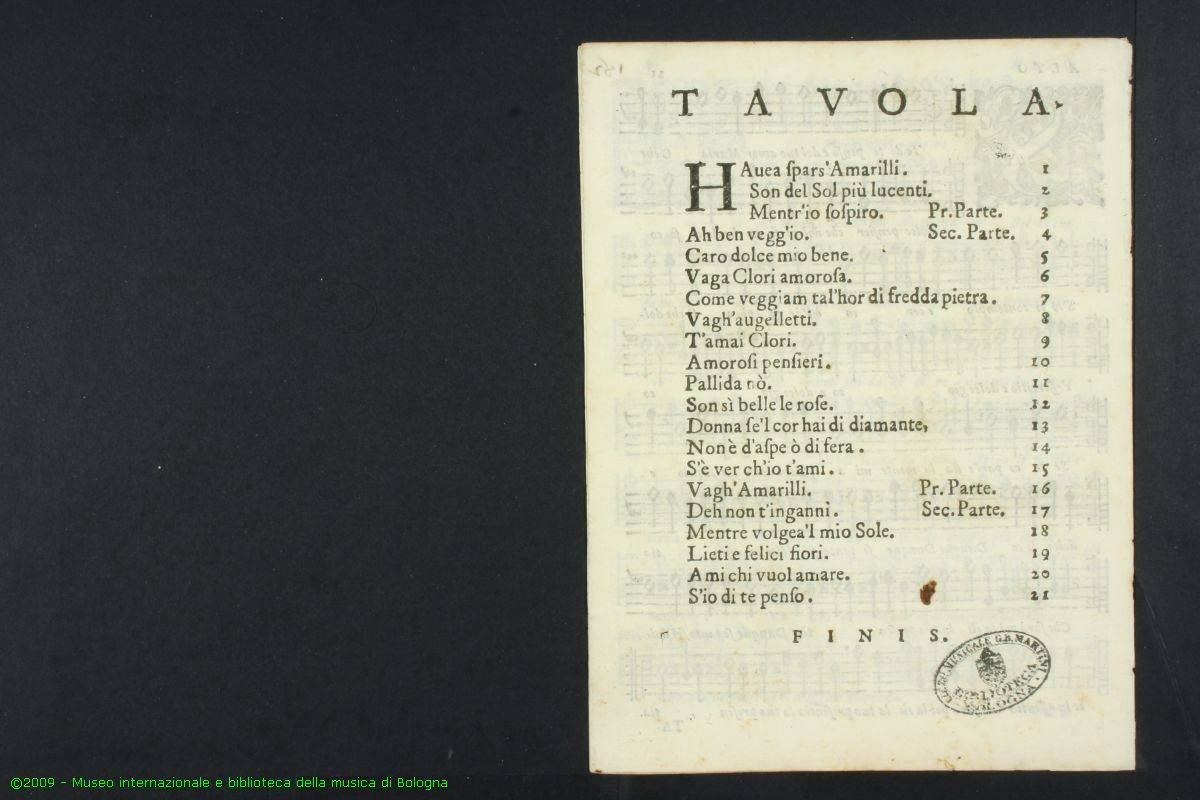 TAVOLA
HAuea ſpars'Amarilli. 1
Son del Sol più lucenti. 2
Mentr'io ſoſpiro. Pr. Parte. 3
Ah ben vegg'io. Sec. Parte. 4
Caro dolce mio bene. 5
Vaga Clori amoroſa. 6
Come veggiam tal'hor di fredda pietra. 7
Vagh'augelletti. 8
T'amai Clori. 9
Amoroſi penſieri. 10
Pallida nò. 11
Son sì belle le roſe. 12
Donna ſe'l cor hai di diamante, 13
Non è d'aſpe ò di fera. 14
S'è ver ch'io t'ami. 15
Vagh'Amarilli. Pr. Parte. 16
Deh non t'inganni. Sec. Parte. 17
Mentre volgea'l mio Sole. 18
Lieti e felici fiori. 19
Ami chi vuol amare. 20
S'io di te penſo. 21
FINIS.
MUSICALE G.B. MARTINI
BIBLIOTECA
BOLOGNA
©2009 - Museo internazionale e biblioteca della musica di Bologna